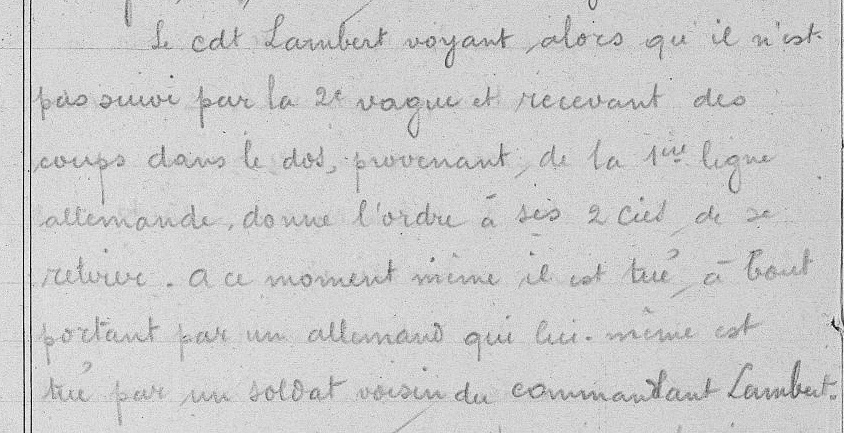 Le cdt Lambert voyant alors qu'il n'est
pas suivi par la 2e vague et recevant des
coups dans le dos, provenant, de la 1ere ligne
allemande, donne l'ordre à ses 2 Cies de se
retirer. A ce moment même il est tué, à bout
portant par un allemand qui lui-même est
tué par un soldat voisin du commandant Lambert.